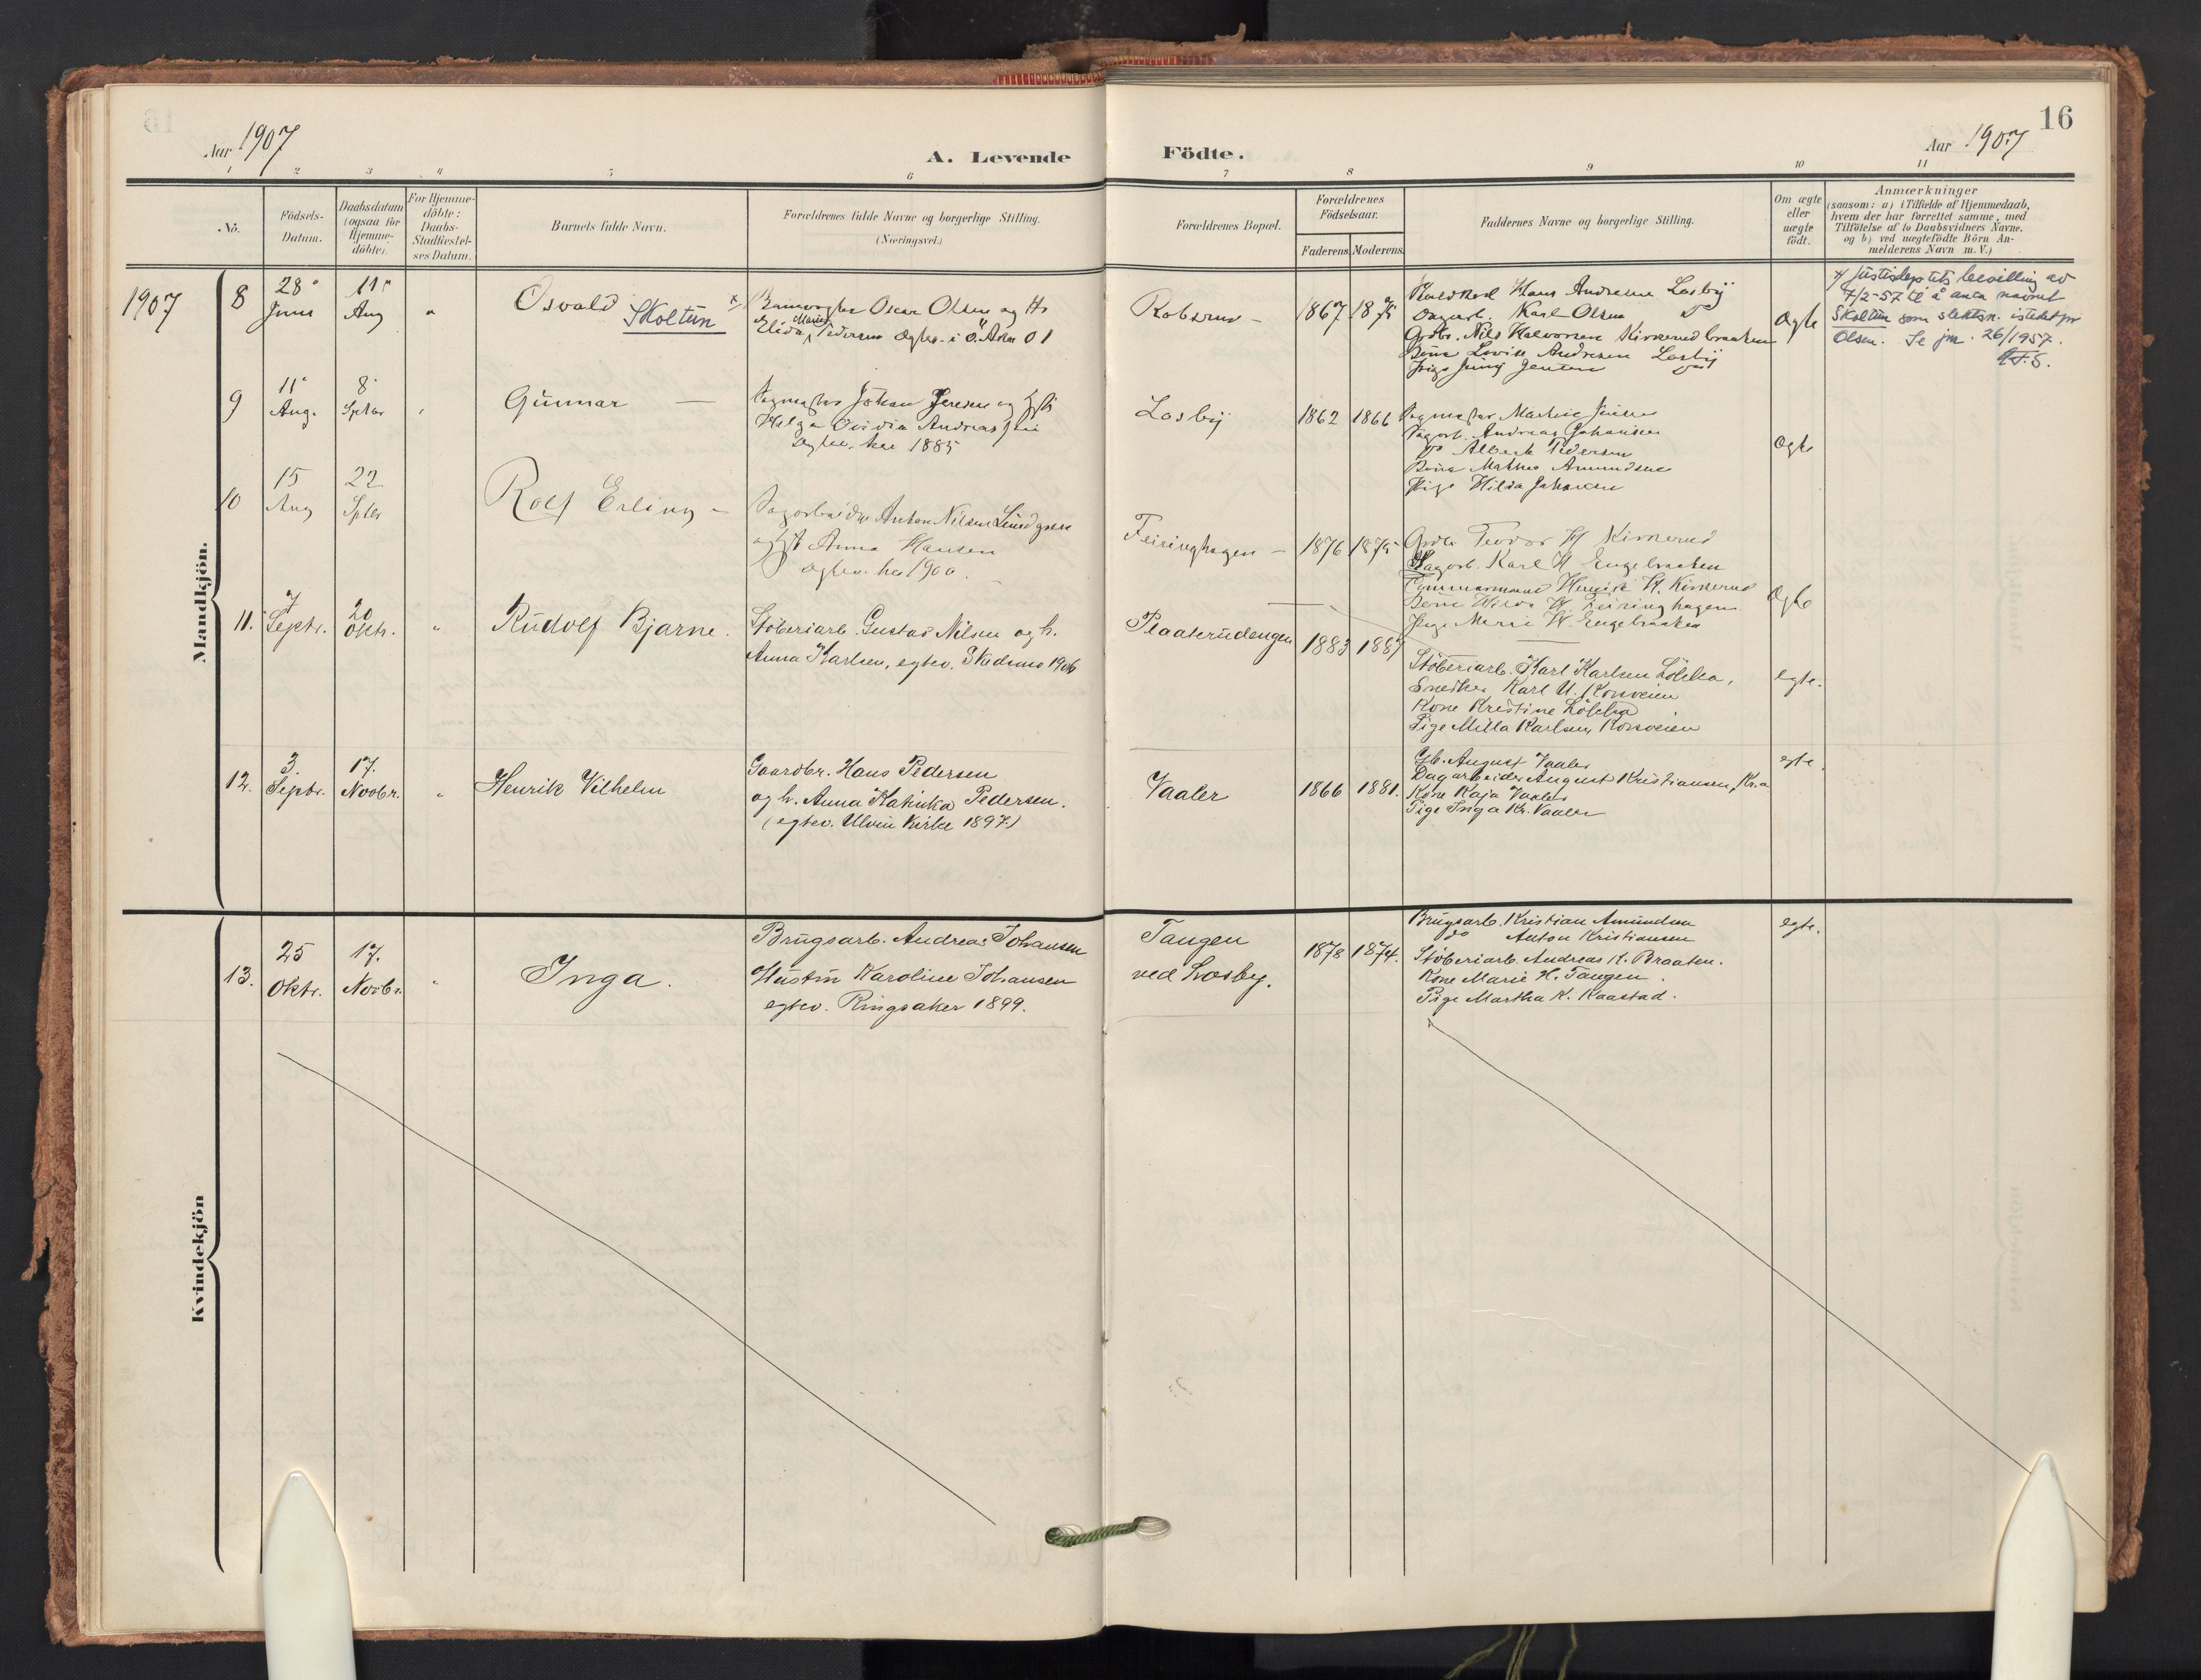 16
Aar 1907
A. Levende
Födte.
Aar 1907
1 2 3 4 5 6 7 8 9 10 11
No.
Födsels-
Datum.
Daabsdatum
(ogsaa för
Hjemme-
döbte).
For Hjemme-
döbte:
Daabs-
Stadfæstel-
ses Datum.
Barnets fulde Navn.
Forældrenes fulde Navne og borgerlige Stilling.
(Næringsvei.)
Forældrenes Bopæl.
Forældrenes
Födselsaar.
Faderens. Moderens.
Faddernes Navne og borgerlige Stilling.
Om ægte
eller
uægte
födt.
Anmærkninger
(saasom: a) i Tilfælde af Hjemmedaab,
hvem der har forrettet samme, med
Tilföielse af to Daabsvidners Navne.
og b) ved uægtefödte Börn An-
melderens Navn m. V.)
Mandkjön.
1907
8
28
Juni
11
Aug
"
Osvald Skoltun x)
Banevogter Oscar Olsen og H.
Elida Marie Pedersen Egtev. i Ö. Aker 01
Robsrud -
1867 1875
Hans Andresen Losby
Dagarb. Karl Olsen do
Grdbr. Nils Halvorsen Kirkerudbraaten
Kone Lovise Andresen Losby
Pige Jenny Jensen do
Egte
x) Justisdep.tets bevilling av
7/2-57 til å anta navnet
Skoltun som slektsn. istedet for
Olsen. Se jnr. 26/1957.
9
11
Aug.
8
Septbr
Gunnar —
Sagmester Johan Jensen og Hst
Helga Ovidia Andreas
egtev. her 1885
Losby
1862 1866
Sagmester Martin Jensen
Sagarb. Andreas Johansen
do Albert Pedersen
Kone Mathea Amundsen
Pige Hilda Johansen
Egte
10
15
Aug
22
Septbr
Rolf Erling -
Sagarbeider Anton Nilsen Lundgren
og Hst Anna Hansen
Egtev. her 1900.
Feiringhagen -
1876 1875
Grdbr Teodor H Kirkerud
Sagarb. Karl H Engebraaten
Tömmermand Henrik H. Kirkerud
Kone Hilda H. Feiringhagen
Pige Marie H. Engebraaten
Egte
11.
7
Septr.
20
Oktr.
"
Rudolf Bjarne.
Stöberiarb. Gustav Nilsen og h.
Anna Karlsen, egtev. Skedsmo 1906
Plaaterudengen
1883 1887
Stöberiarb. Karl Karlsen Lökka,
Snedker Karl U. Korsveien
Kone Kristine Lökka
Pige Milla Karlsen Korsveien
egte.
12.
3
Septr.
17.
Novbr.
"
Henrik Vilhelm
Gaardbr. Hans Pedersen
og h. Anna Katinka Pedersen.
(egtev. Ulvin Kirke 1897.)
Vaaler
1866 1881.
Gb. August Vaaler
Dagarbeider August Kristiansen, Kr.a
Kone Kaja Vaaler
Pige Inga Kr. Vaaler
egte.
Kvindekjön
13.
25
Oktr.
17.
Novbr.
"
Inga.
Brugsarb. Andreas Johansen
Hustru Karoline Johansen
egtev. Ringsaker 1899.
Tangen
ved Losby.
1878 1874.
Brugsarb. Kristian Amundsen
do Anton Kristiansen
Stöberiarb. Andreas K. Braaten.
Kone Marie H. Tangen.
Pige Martha K. Kaastad.
egte.